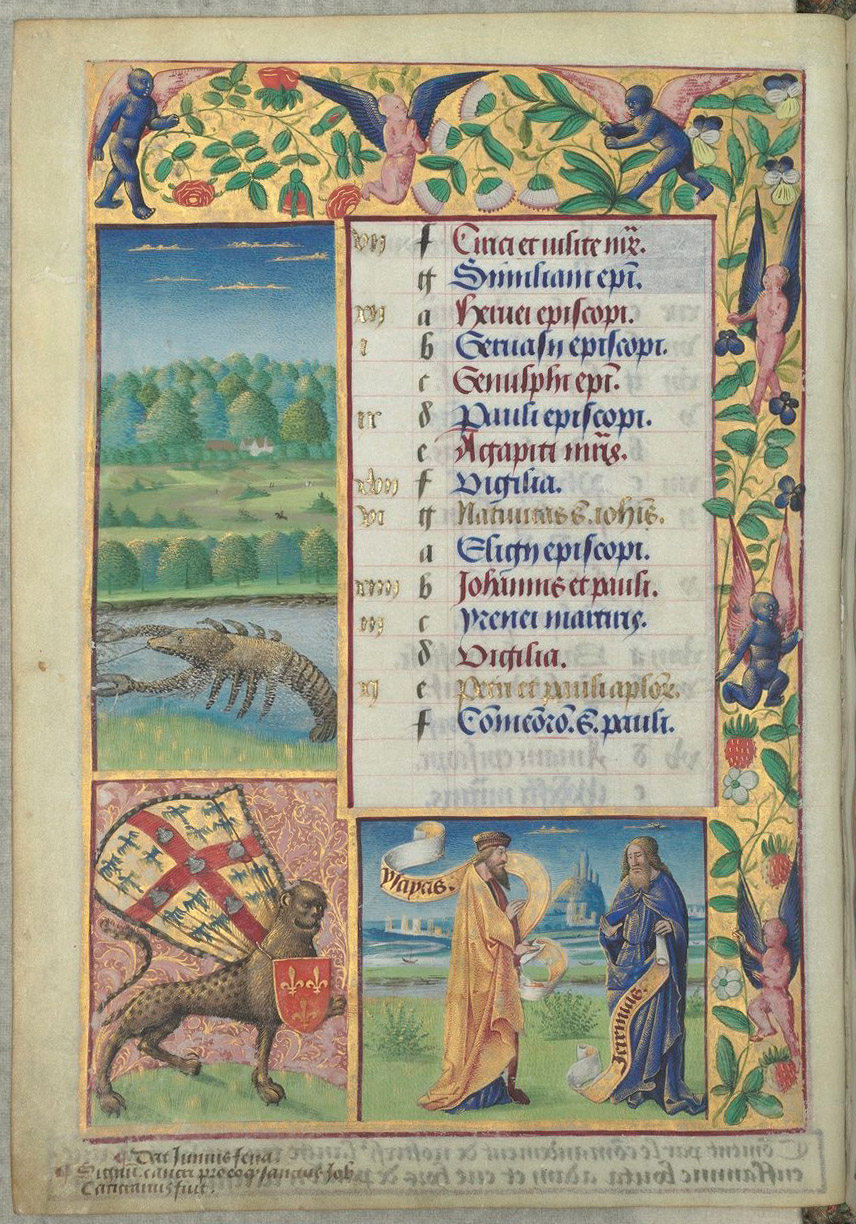 vii f Cirici et iulite mr̄.
g Similiani epī.
xv a Heruei episcopi.
i b Geruasij episcopi.
c Genulphi epī.
ix d Pauli episcopi.
e Agapiti mr̄s.
xvii f Vigilia.
vi g Natiuitas s. ioħis.
a Eligij episcopi.
xiiii b Johannis et pauli.
iii c yrenei martiris.
d Vigilia.
xi e Petri et pauli aplōr.
f Cōmeōro. S. pauli.
ysayas.
Jeremias.
Dat Junius fena.
Signū. cancri
Cancianus fuit.